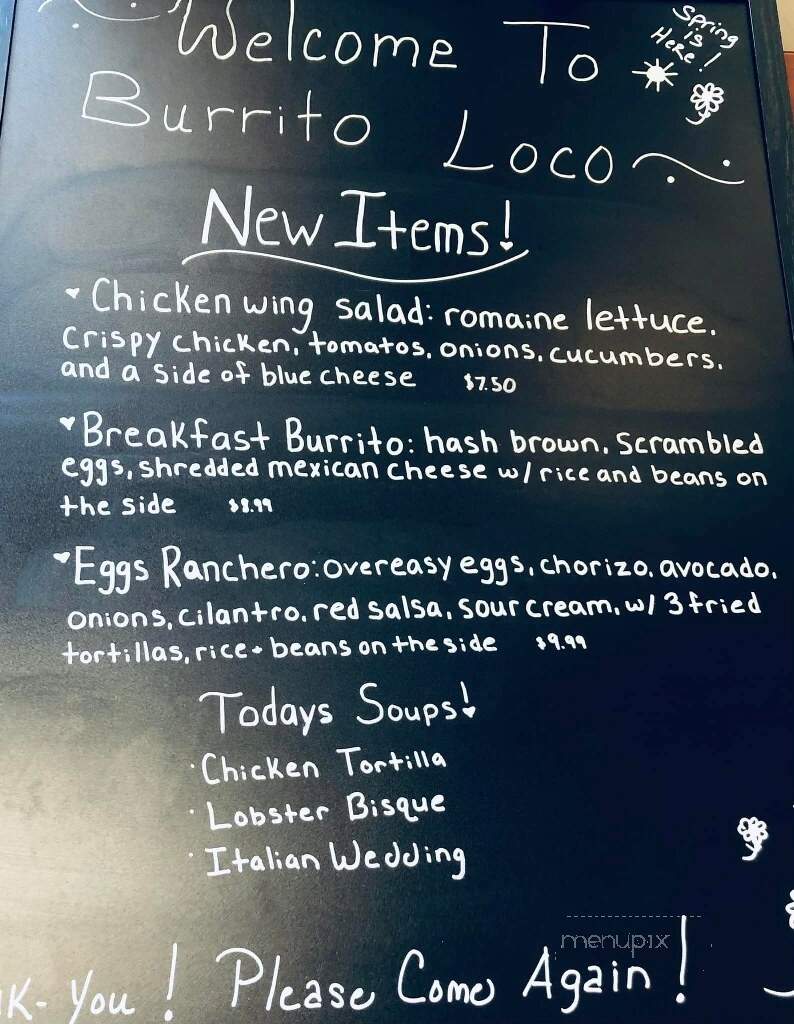 Welcome To
Spring
is
Here!
Burrito Loco
New Items!
Chicken wing salad: romaine lettuce,
crispy chicken, tomatos, onions, cucumbers,
and a side of blue cheese $7.50
Breakfast Burrito: hash brown, scrambled
eggs, shredded mexican cheese w/ rice and beans on
the side $8.99
Eggs Ranchero: overeasy eggs, chorizo, avocado,
onions, cilantro, red salsa, sour cream, w/ 3 fried
tortillas, rice + beans on the side $9.99
Todays Soups!
· Chicken Tortilla
· Lobster Bisque
· Italian Wedding
menupix
K-You! Please Come Again!